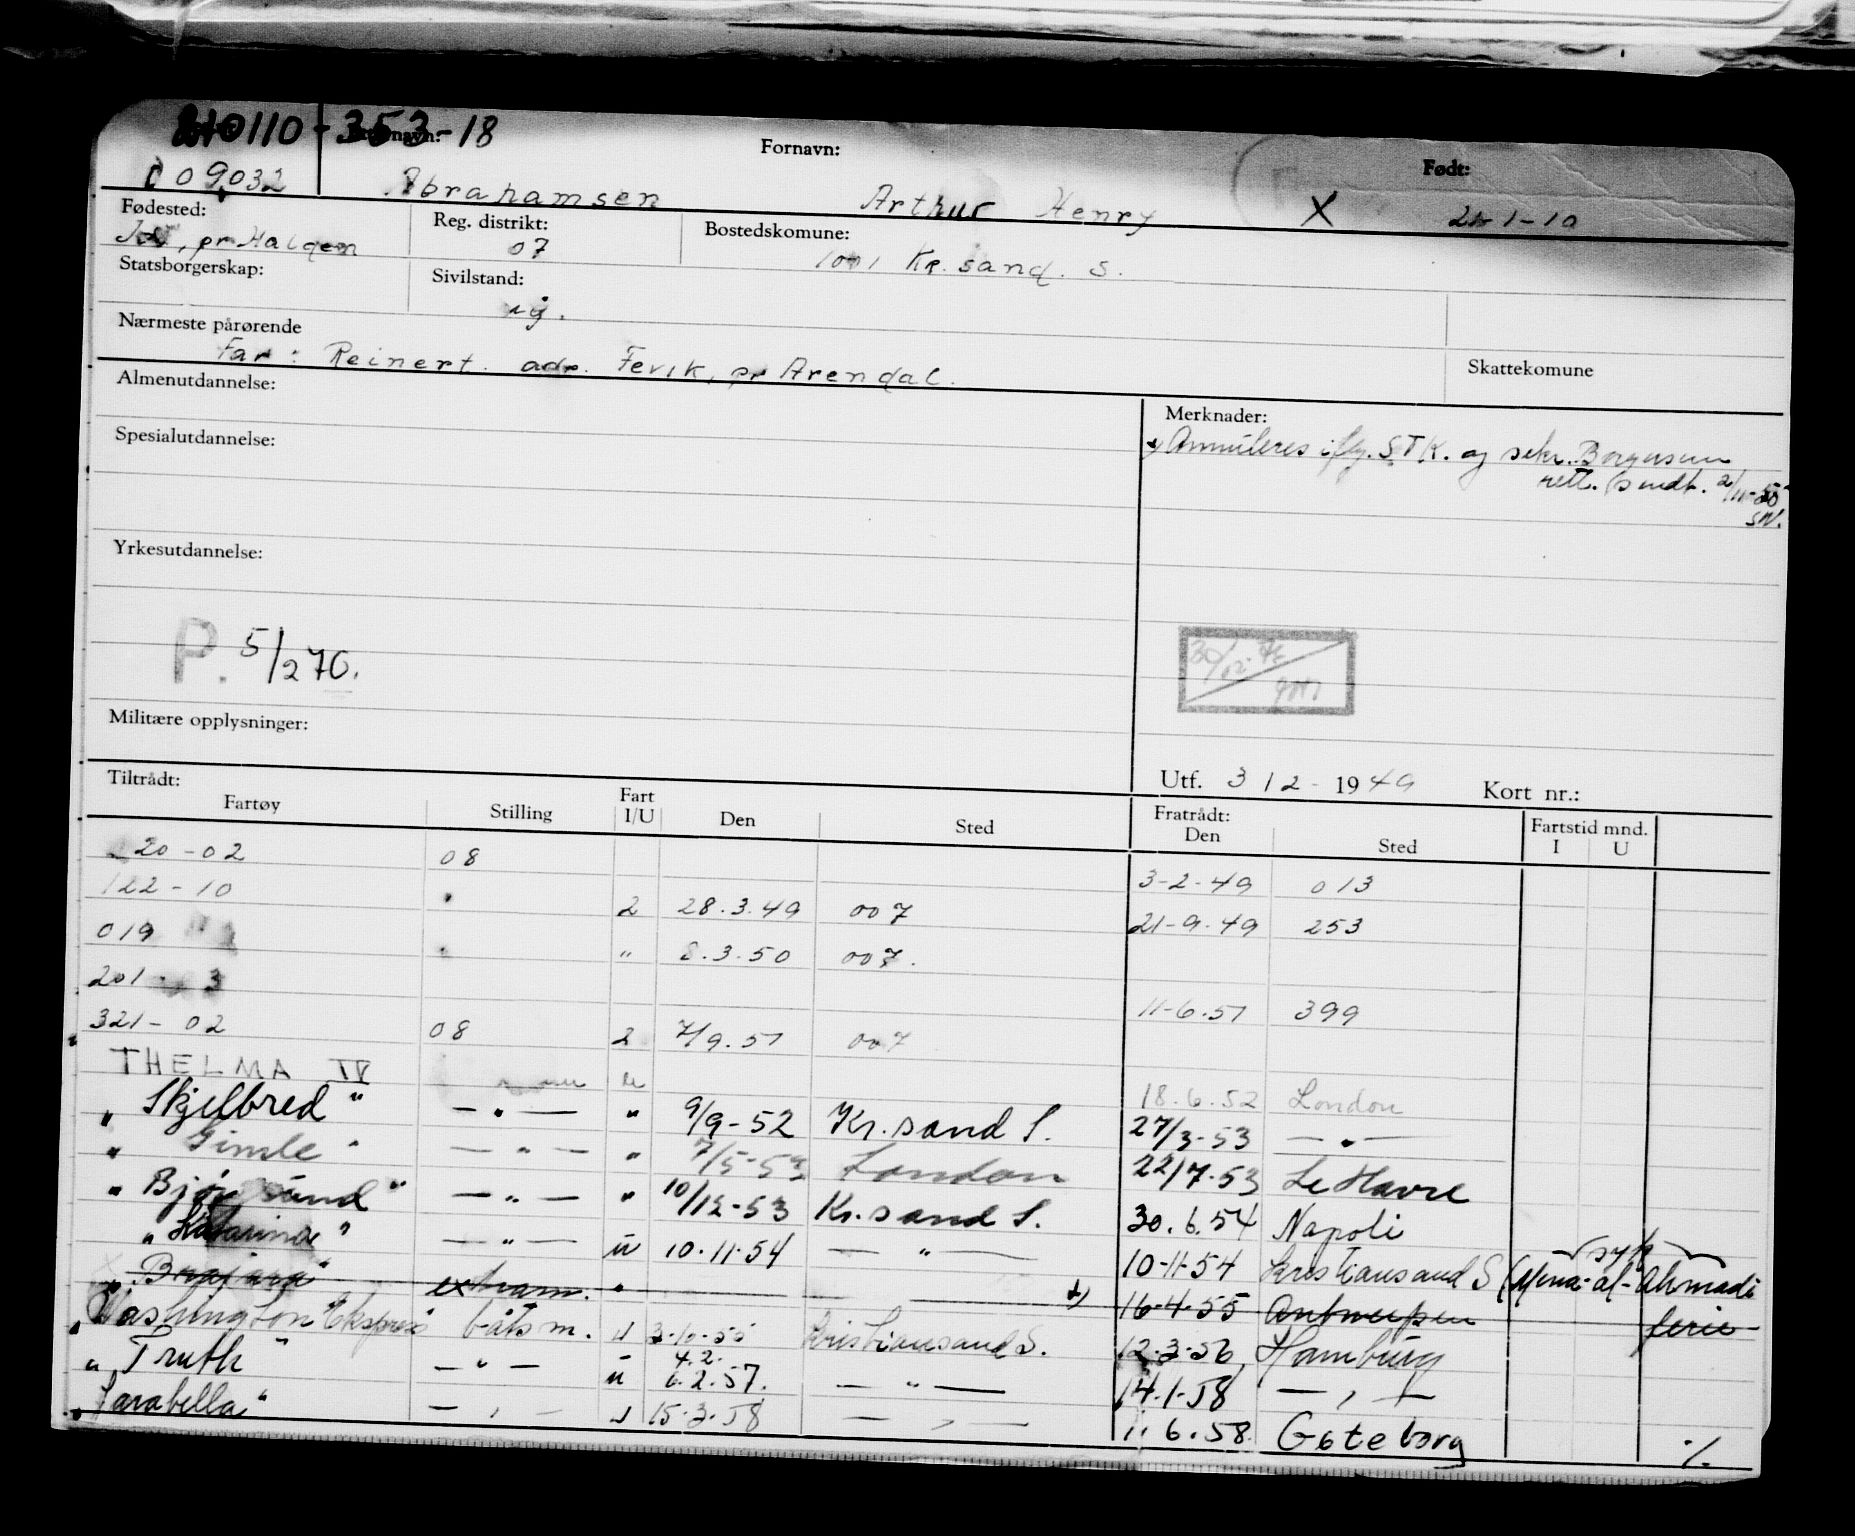 210110-353-18
Etternavn: Fornavn: Født:
009032 Abrahamsen Arthur Henry X 21-1-10
Fødested: Reg. distrikt: Bostedskomune:
pr Halgen 07 1001 Kr. sand. S.
Statsborgerskap: Sivilstand:
ug.
Nærmeste pårørende
Far: Reinert. adr. Fevik, pr Arendal. Skattekomune
Almenutdannelse: Merknader:
Annuleres iflg. STK. og sekr. Borgersen
Spesialutdannelse:
rett. 2/11-55
SN.
Yrkesutdannelse:
P. 5/270.
30/12
Militære opplysninger:
Utf. 3 12 - 1949 Kort nr.:
Tiltrådt: Fratrådt:
Fartøy Stilling Fart I/U Den Sted Den Sted Fartstid mnd. I U
20-02 08 3-2-49 013
122-10 " 2 28.3.49 007 21-9-49 253
019 " " 8.3.50 007.
201- 3 11-6.51 399
321-02 08 2 7/9.51 007
THELMA IV 18.6.52 London
" Skjelbred " — " — " 9/9-52 Kr. sand S. 27/3-53 — " —
" Gimle " — " — " 7/5-53 London 22/7-53 Le Havre
" Bjørgsund " — " — " 10/12-53 Kr. sand S. 30.6.54 Napoli
" Katarina " — " — u 10.11.54 — " — 10-11-54 Kristiansand S (Mena-al-Ahmadi syk
" extram. " — 16-4-55 Antwerpen ferie
" Washington Ekspress båtsm. u 3.10.55 Kristiansand S. 12.3.56 Hamburg
" Truth " — " — u 4.2. 6.2.57. — " — 14.1.58 — " —
" Sarabella " — " — u 15.3.58 — " — 11.6.58. Göteborg
./.